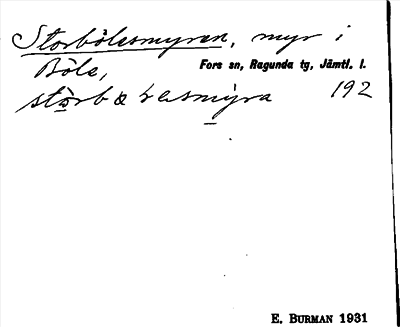 Storbölesmyren, myr i
Böle, Fors sn, Ragunda tg, Jämtl. l.
192
E. BURMAN 1931